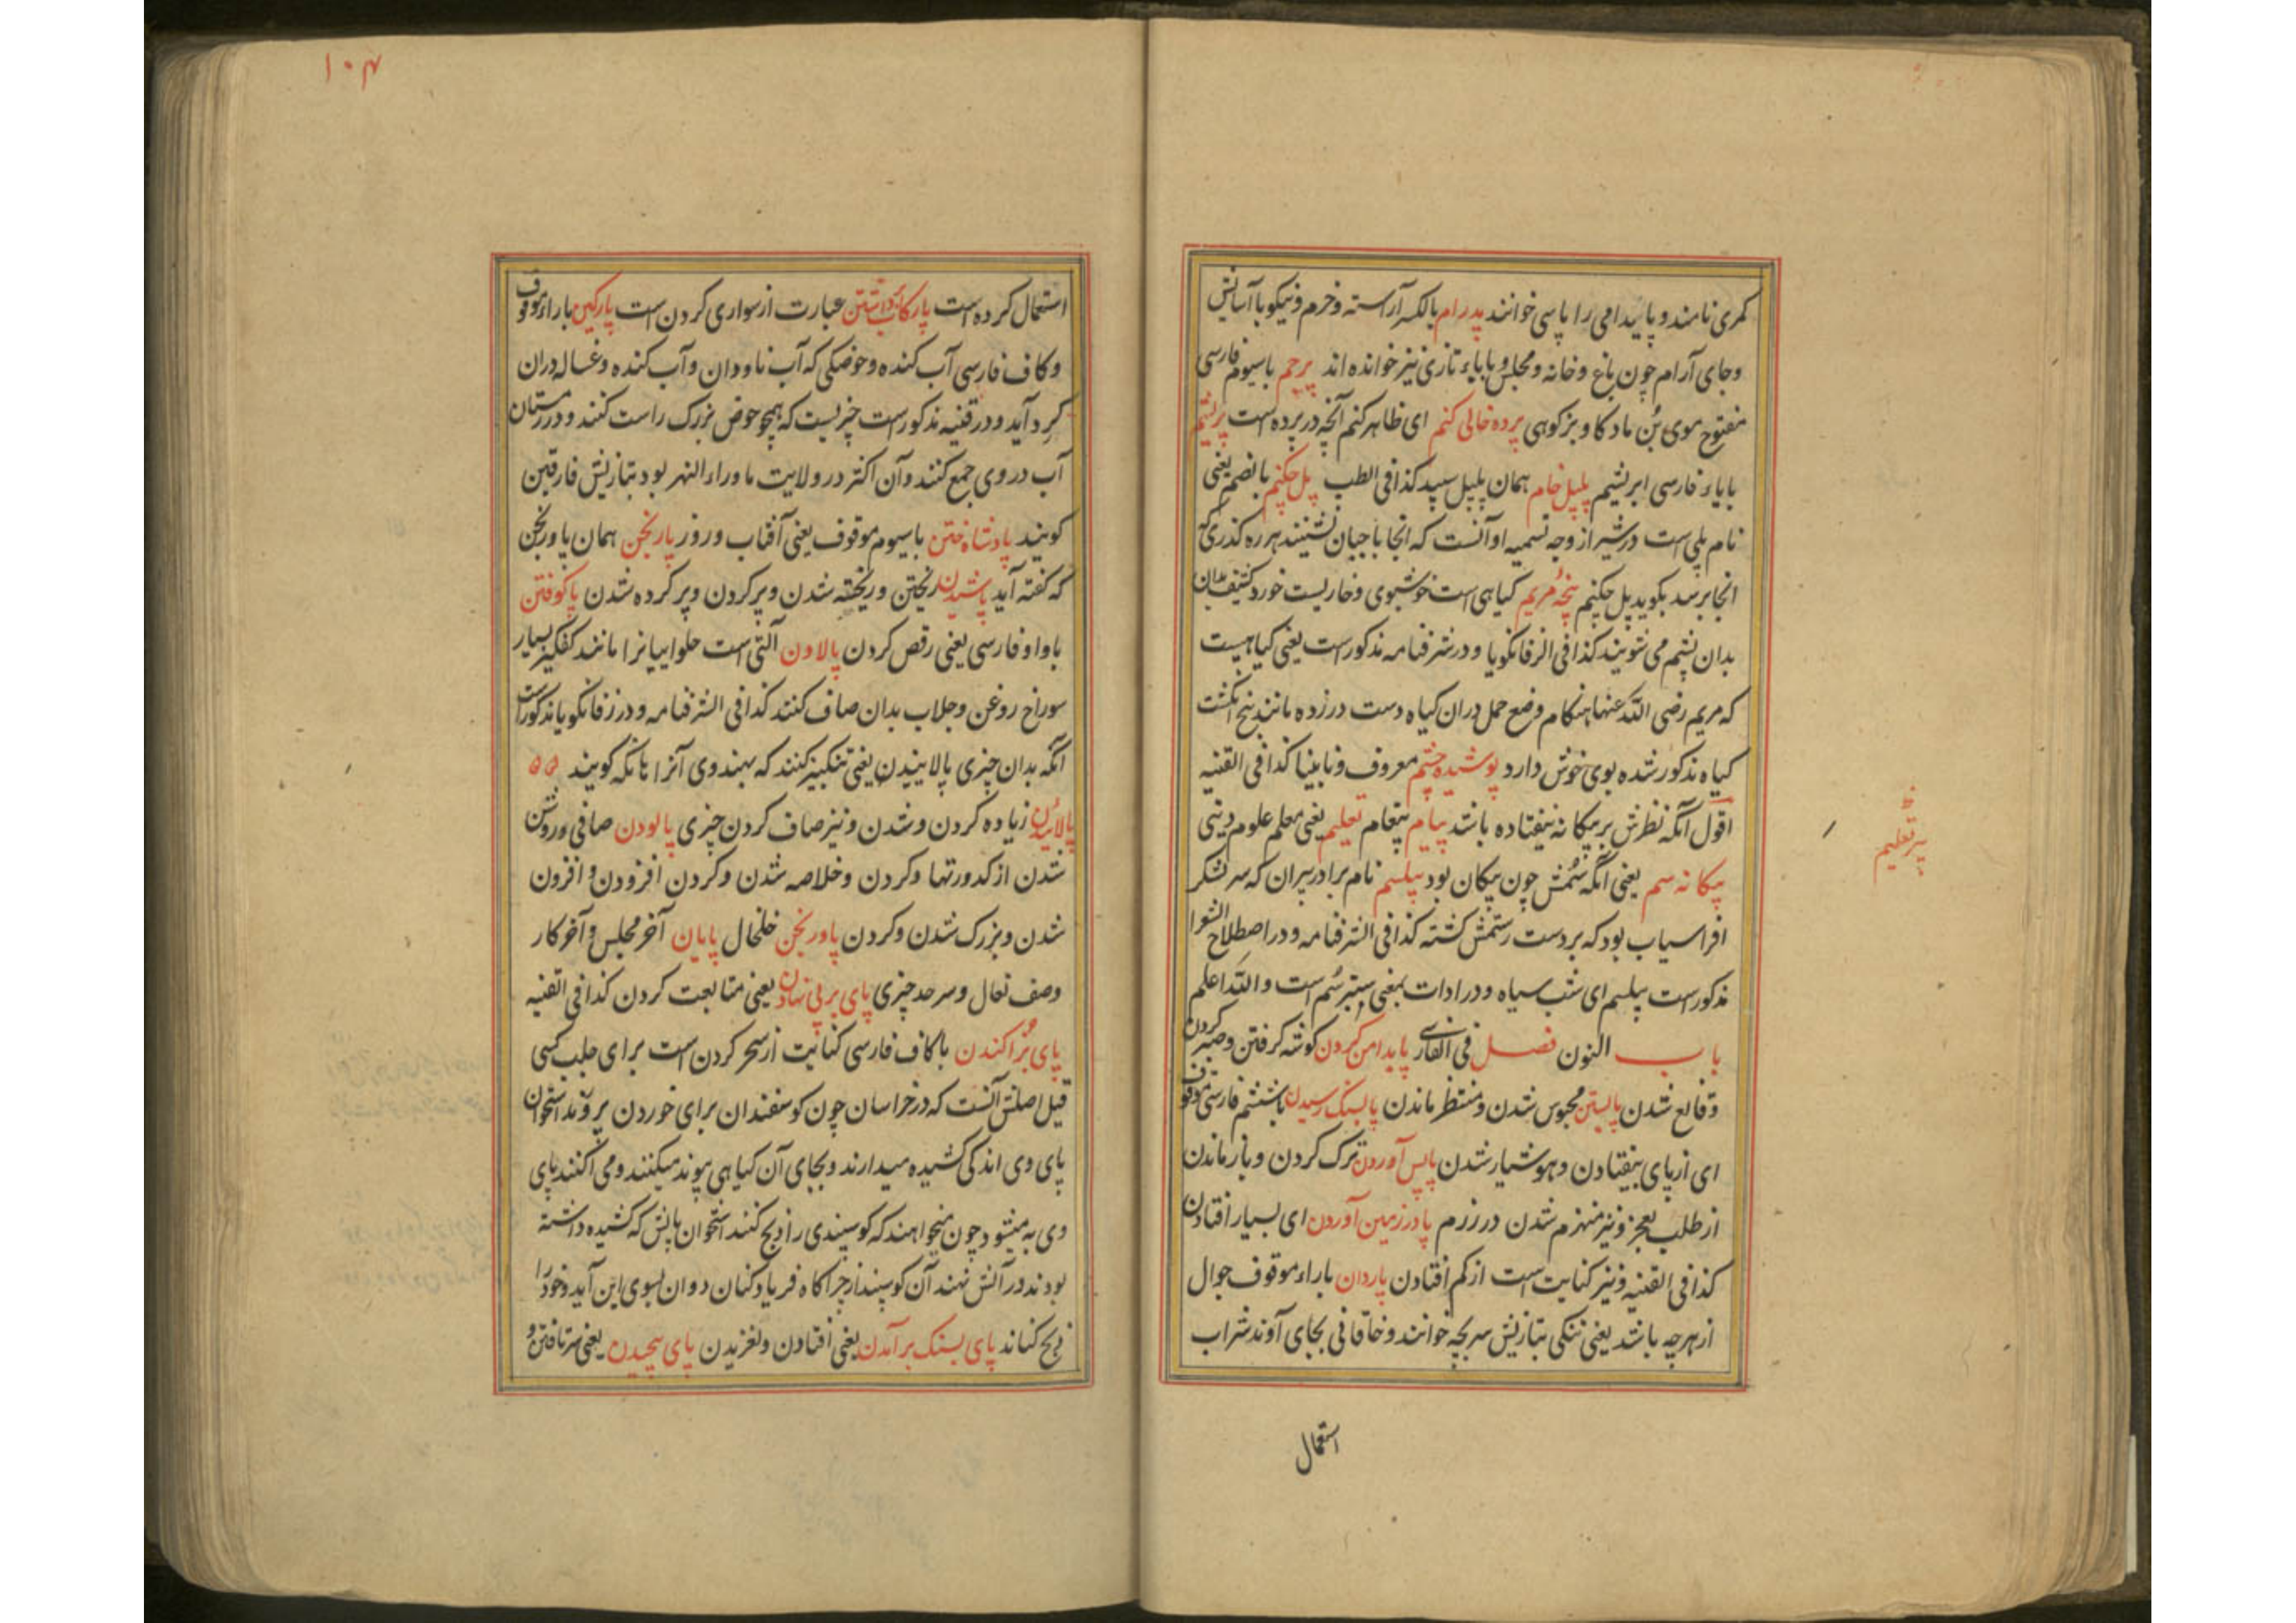 کمری نامند و پایدامی را پاسی خوانند پدرام بالکسر آراسته و خرم و نیکو با آسایش
و جای آرام چون باغ و خانه و مجلس و با باء تازی نیز خوانده اند پرچم با سیوم فارسی
مفتوح موی بُن ماد کاو بزکوهی پرده خالی کنم ای ظاهر کنم آنچه در پرده است پرلیثم
با یاء فارسی ابریشم پلپل خام همان پلپل سپید کذا فی الطب پل حکیم بالضم یعنی
نام پلی است در شیراز وجه تسمیه او آنست که انجا نشینند هر ره کذری که
انجا برسد بکوید پل حکیم پنجهٔ مریم کیاهی است خوشبوی و خاریست خورد کثیف بدان
بدان پشم می شویند کذا فی الزفانکویا و در شرفنامه مذکورست یعنی کیاهیست
که مریم رضی الله عنها هنکام وضع حمل دران کیاه دست در زده مانند پنج انکشت
کیاه مذکور شده بوی خوش دارد پوشیده چشم معروف و نابینا کذا فی القنیه
اقول آنکه نظرش بر بیکانه نیفتاده باشد پیام پیغام تعلیم یعنی معلم علوم دینی
پیکانه سم یعنی آنکه سُمش چون پیکان بود پیلسم نام برادر پیران که سر لشکر
افراسیاب بود که بر دست رستمش کشته کذا فی الشرفنامه و در اصطلاح الشعرا
مذکورست پیلسم ای شب سیاه و در ادات بمعنی ستبر سُم است والله اعلم
باب النون فصل فی الفارسی پا بدامن کردن کوشه کرفتن و صبر کردن
و قانع شدن پابستن محبوس شدن و منتظر ماندن پا بسنک رسیدن با ششم فارسی موقوف
ای از پای بیفتادن و هوشیار شدن پاپس آوردن ترک کردن و باز ماندن
از طلب بعجز و نیز منهزم شدن در رزم پا در زمین آوردن ای بسیار افتادن
کذا فی القنیه و نیز کنایت است از کم افتادن پاردان با راء موقوف جوال
از هر چه باشد یعنی تنکی بتازیش سربچه خوانند و خاقانی بجای آوند شراب
استعمال
پیر تعلیم
۱۰۴
استعمال کرده است پا رکاب داشتن عبارت از سواری کردن است پارکین با راء موقوف
و کاف فارسی آب کنده و حوضکی که آب ناودان و آب کنده و غساله دران
کرد آید و در قنیه مذکورست چیزیست که همچو حوض بزرک راست کنند و در زمستان
آب در وی جمع کنند و آن اکثر در ولایت ماوراء النهر بود بتازیش فارقین
کویند پادشاه ختن با سیوم موقوف یعنی آفتاب و روز پارنجن همان پاورنجن
که کفته آید پاشیدن ریختن و ریخته شدن و پر کردن و پر کرده شدن پا کوفتن
با واو فارسی یعنی رقص کردن پالاون آلتی است حلواییانرا مانند کفکیر بسیار
سوراخ روغن و جلاب بدان صاف کنند کذا فی الشرفنامه و در زفانکویا مذکورست
آنکه بدان چیزی پالاییدن یعنی تنکبیز کنند که بهندوی آنرا کویند
پالائیدن زیاده کردن و شدن و نیز صاف کردن چیزی پالودن صافی و روشن
شدن از کدورتها و کردن و خلاصه شدن و کردن افزودن و افزون
شدن و بزرک شدن و کردن پاورنجن خلخال پایان آخر مجلس و آخر کار
وصف نعال و سرحد چیزی پای بر پی نهادن یعنی متابعت کردن کذا فی القنیه
پای بُز اکندن با کاف فارسی کنایت از سحر کردن است برای جلب کسی
قیل اصلش آنست که در خراسان چون کوسفندان برای خوردن استخوان
پای وی اندکی کشیده میدارند و بجای آن کیاهی پیوند میکنند و می اکنند پای
وی به میشود چون میخواهند که کوسپندی را ذبح کنند استخوان پایش که کشیده داشته
بودند در آتش نهند آن کوسپند از چراکاه فریاد کنان دوان بسوی این آید و خود را
ذبح کناند پای بسنک برآمدن یعنی افتادن و لغزیدن پای پیچیدن یعنی سرتافتن و